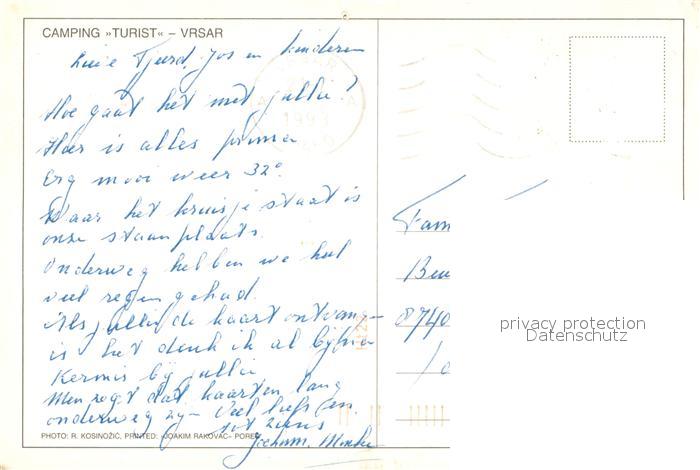 CAMPING »TURIST« – VRSAR
Lieve Tjeerd, Jos en kinderen
Hoe gaat het met jullie?
Hier is alles prima
Erg mooi weer 32°
Daar het kruisje staat is
onze staanplaats.
Onderweg hebben we heel
veel regen gehad.
Als jullie de kaart ontvang-
is het denk ik al bijna
Kermis bij jullie
Men zegt dat kaarten lang
onderweg zijn Veel liefs en
tot ziens
Jochum,
PHOTO: R. KOSINOŽIĆ, PRINTED: »JOAKIM RAKOVAC« POREČ
1993
Fam
8740
privacy protection
Datenschutz